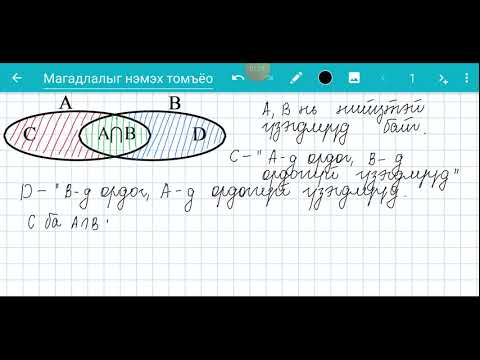 Магадлалыг нэмэх томъёо
1
A
B
C
A∩B
D
A, B нь нийцтэй
үзэгдлүүд байг.
C – "A-д ордог, B-д
ордоггүй үзэгдлүүд"
D – "B-д ордог, A-д ордоггүй үзэгдлүүд.
C ба A∩B